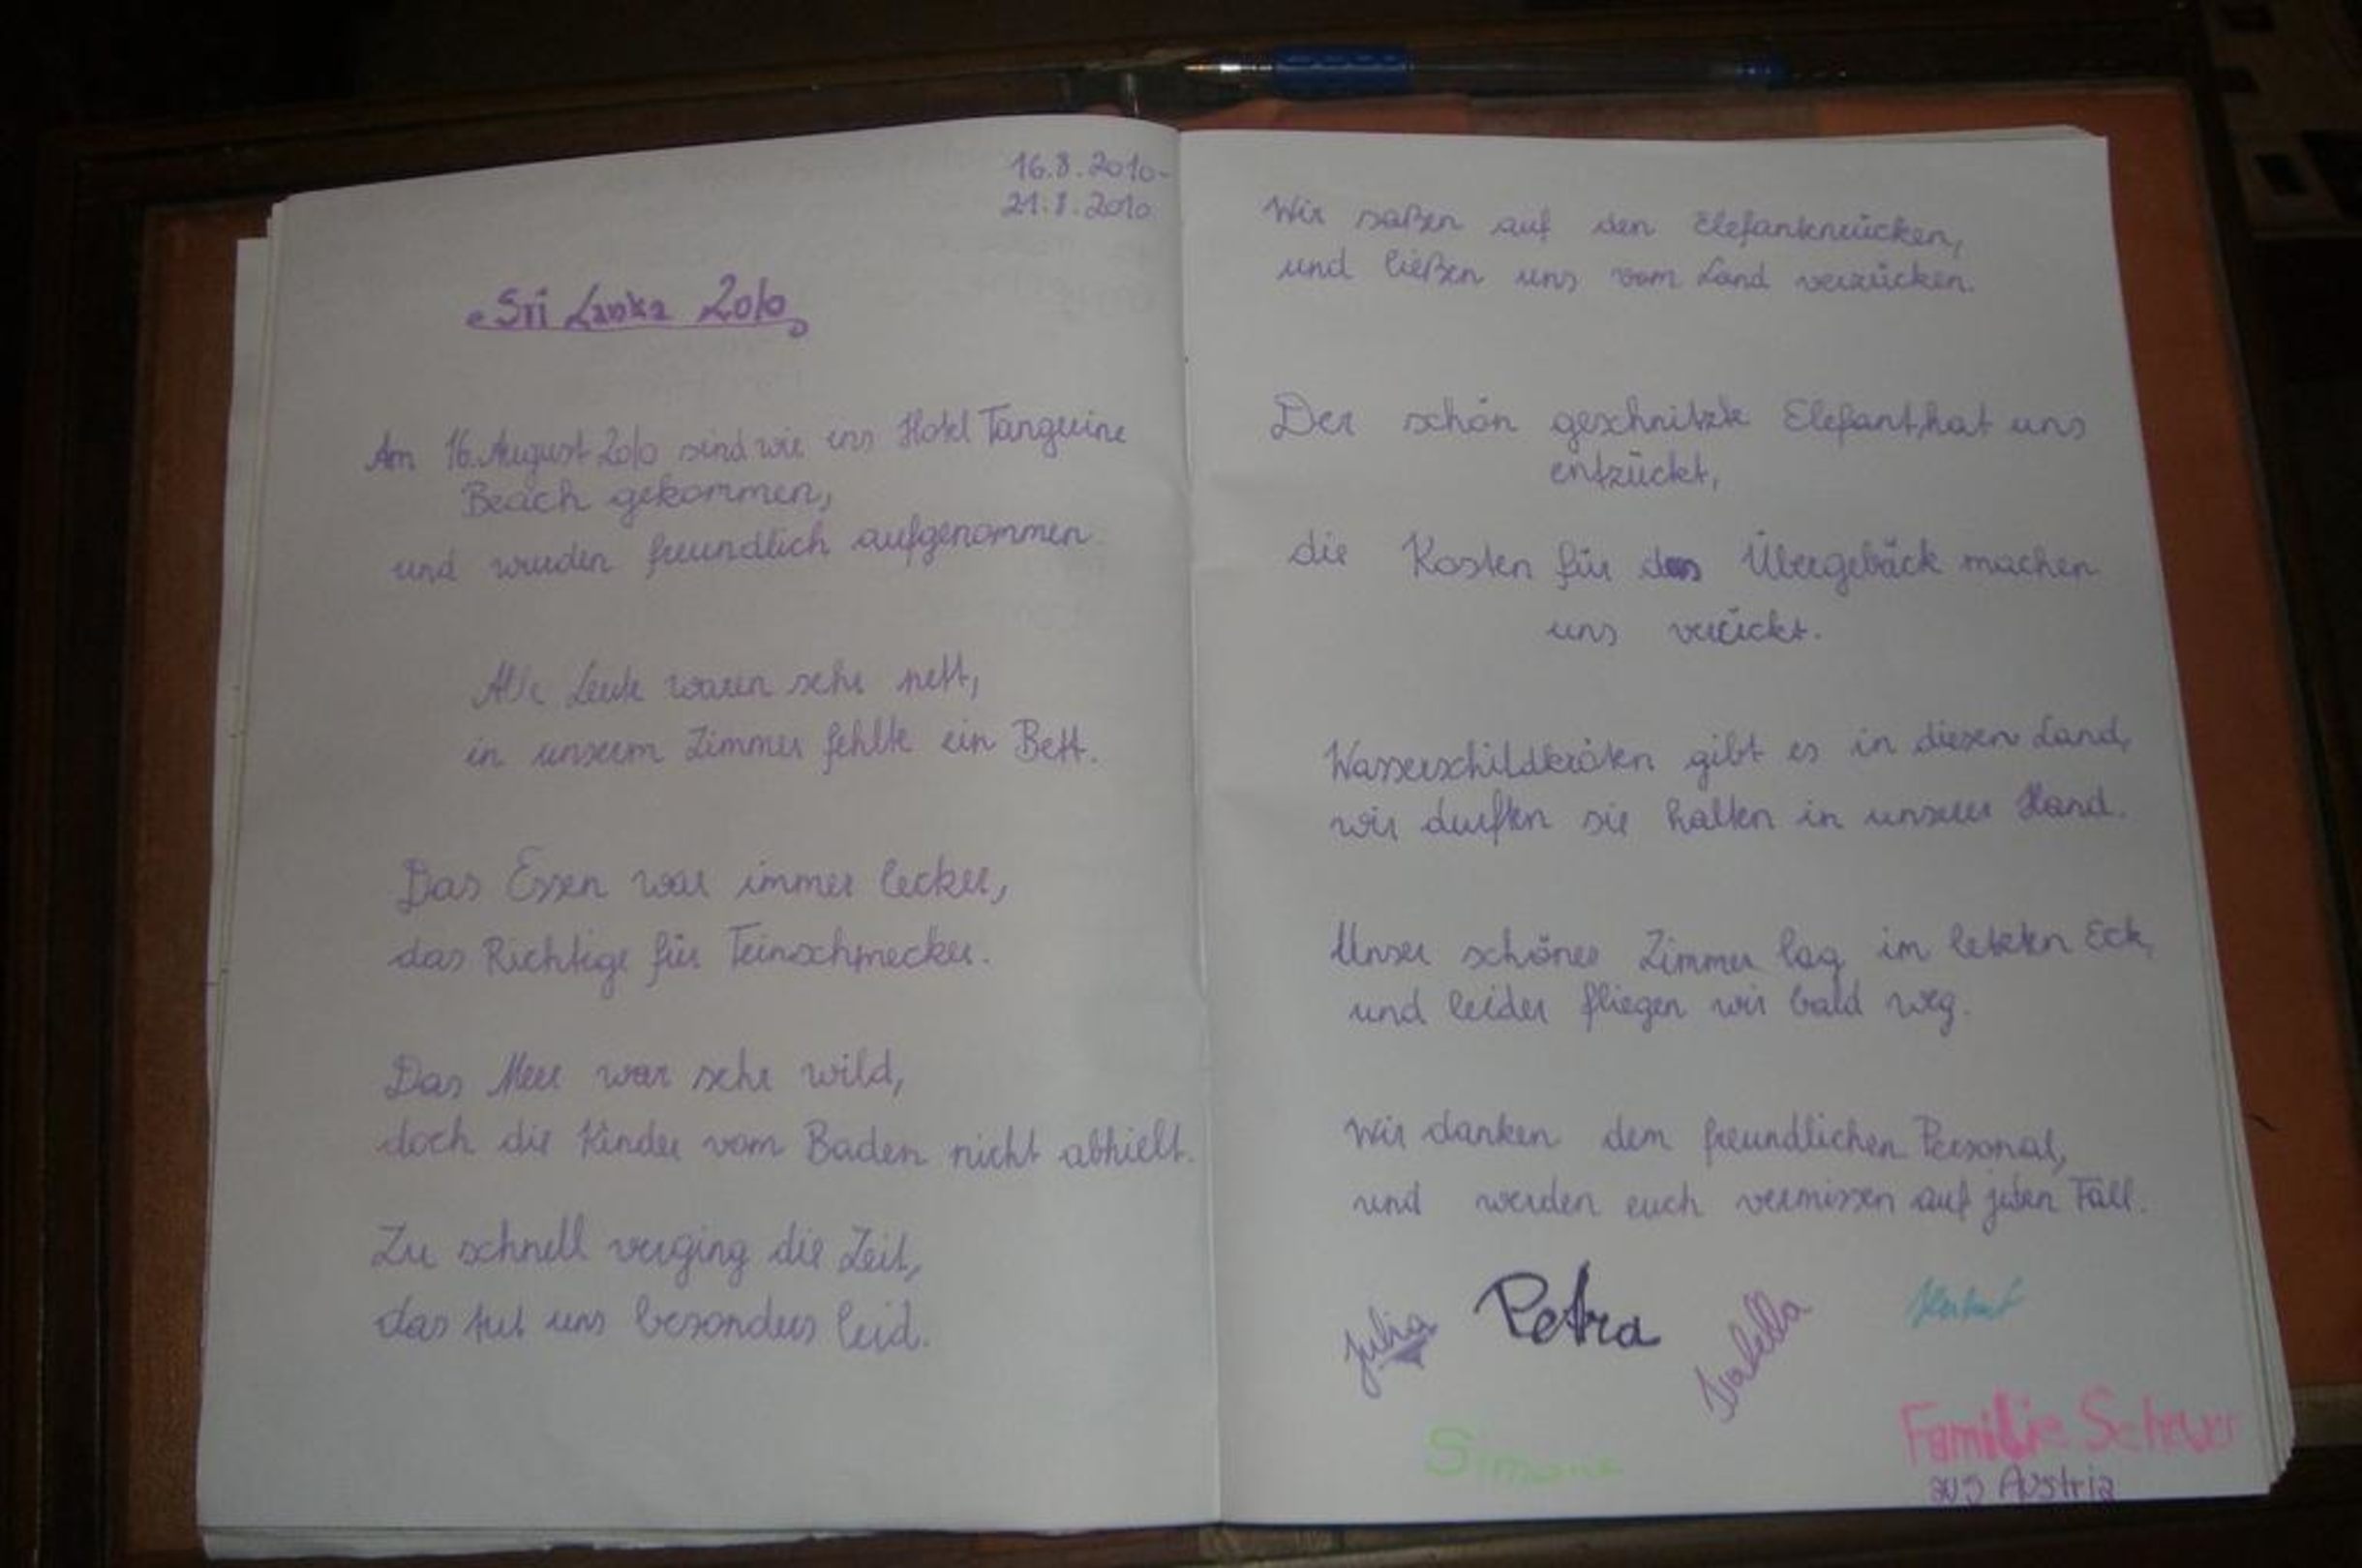 16.8.2010-
21.8.2010
Sri Lanka 2010
Am 16. August 2010 sind wir ins Hotel Tanguine
Beach gekommen,
und wurden freundlich aufgenommen.
Alle Leute waren sehr nett,
in unserem Zimmer fehlte ein Bett.
Das Essen war immer lecker,
das Richtige für Feinschmecker.
Das Meer war sehr wild,
doch die Kinder vom Baden nicht abhielt.
Zu schnell verging die Zeit,
das tut uns besonders leid.
Wir saßen auf den Elefantenrücken,
und ließen uns vom Land verzücken.
Der schön geschnitzte Elefant, hat uns
entzückt,
die Kosten für das Übergebäck machen
uns verückt.
Wasserschildkröten gibt es in diesen Land,
wir durften sie halten in unserer Hand.
Unser schönes Zimmer lag im letzten Eck,
und leider fliegen wir bald weg.
Wir danken dem freundlichen Personal,
und werden euch vermissen auf jeden Fall.
Julia Petra Isabella Herbert
Simone
Familie Scheuer
aus Austria